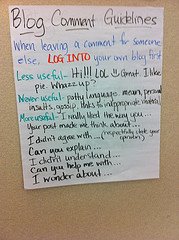 Blog Comment Guidelines
When leaving a comment for someone
else, LOG INTO your own blog first
Less useful- Hi!!! LOL Great. I like
pie. Whazz up?
Never useful- potty language, mean, personal
insults, gossip, links to inappropriate material
More useful- I really liked the way you...
Your post made me think about...
I didn't agree with... (respectfully state your
opinion)
Can you explain...
I didn't understand...
Can you help me with...
I wonder about...